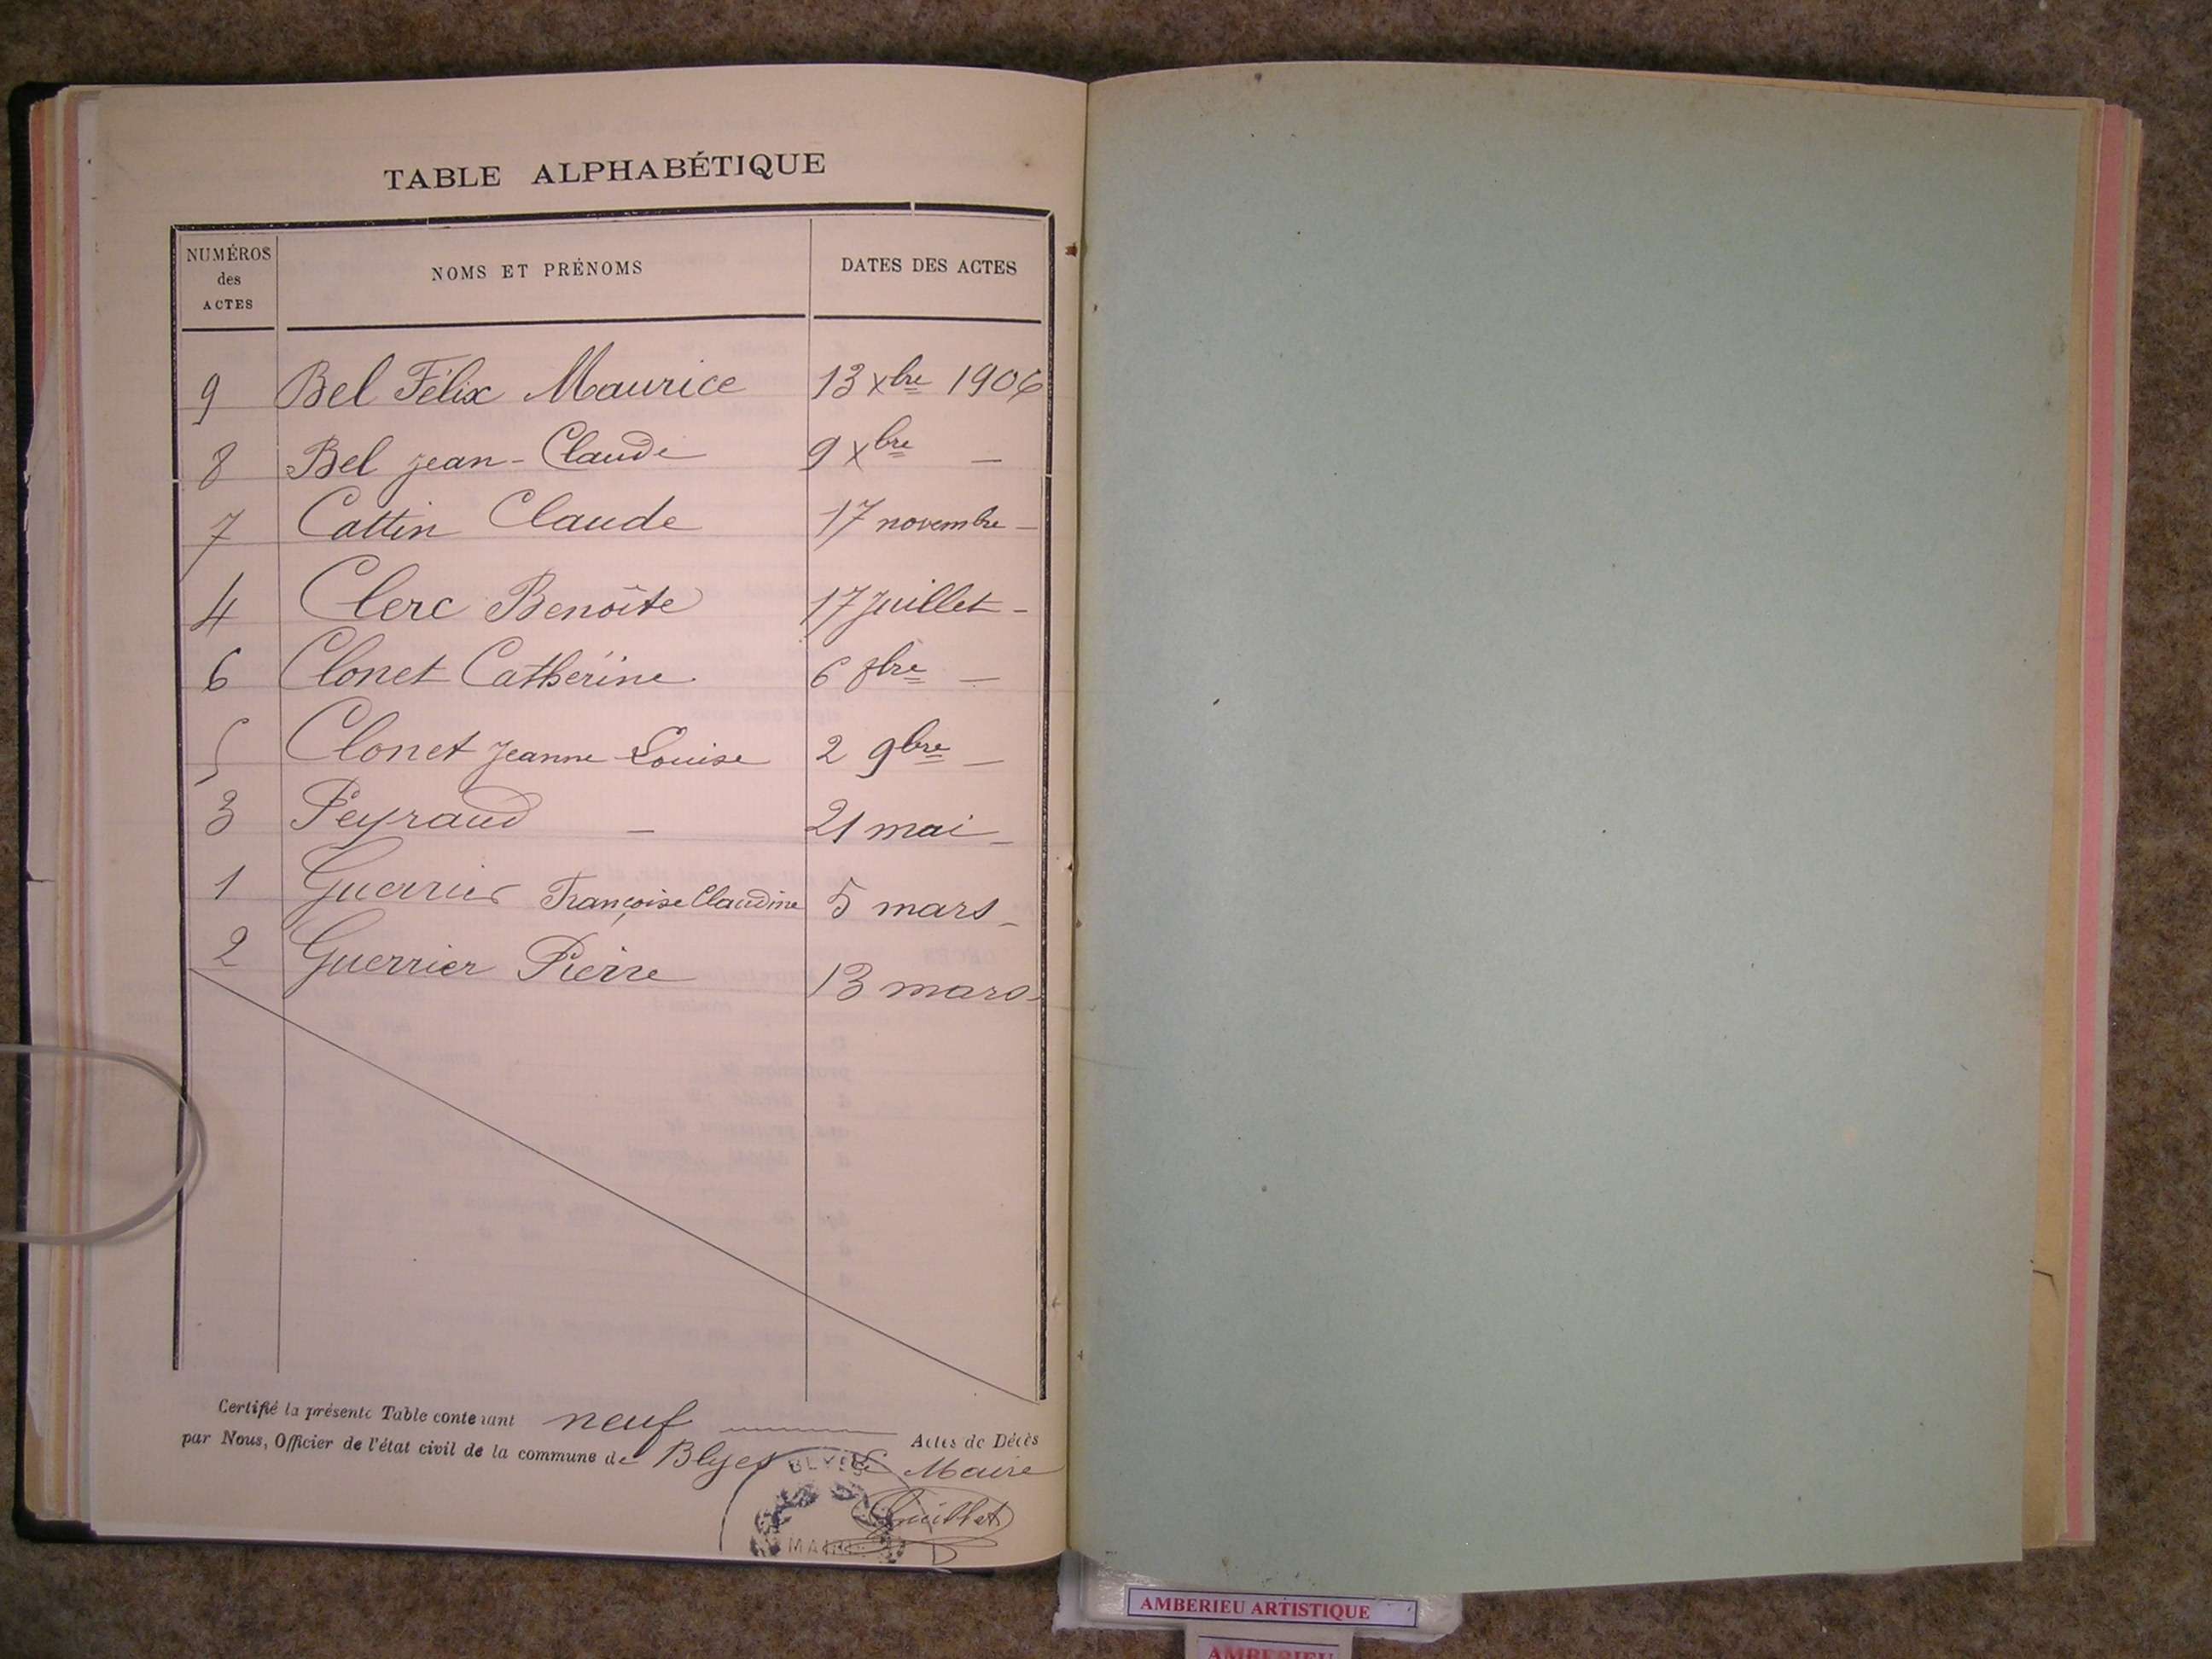 TABLE ALPHABÉTIQUE
NUMÉROS des ACTES NOMS ET PRÉNOMS DATES DES ACTES
9 Bel Félix Maurice 13 xbre 1906
8 Bel Jean-Claude 9 xbre —
7 Cattin Claude 17 novembre —
4 Clerc Benoîte 17 Juillet —
6 Clonet Catherine 6 —
5 Clonet Jeanne Louise 2 9bre —
3 Peyraud — 21 mai —
1 Guerrier Françoise Claudine 5 mars —
2 Guerrier Pierre 13 mars —
Certifié la présente Table contenant neuf Actes de Décès
par Nous, Officier de l'état civil de la commune de Blyes Le Maire
BLYES
Guillet
MAIRIE
AMBERIEU ARTISTIQUE
AMBERIEU